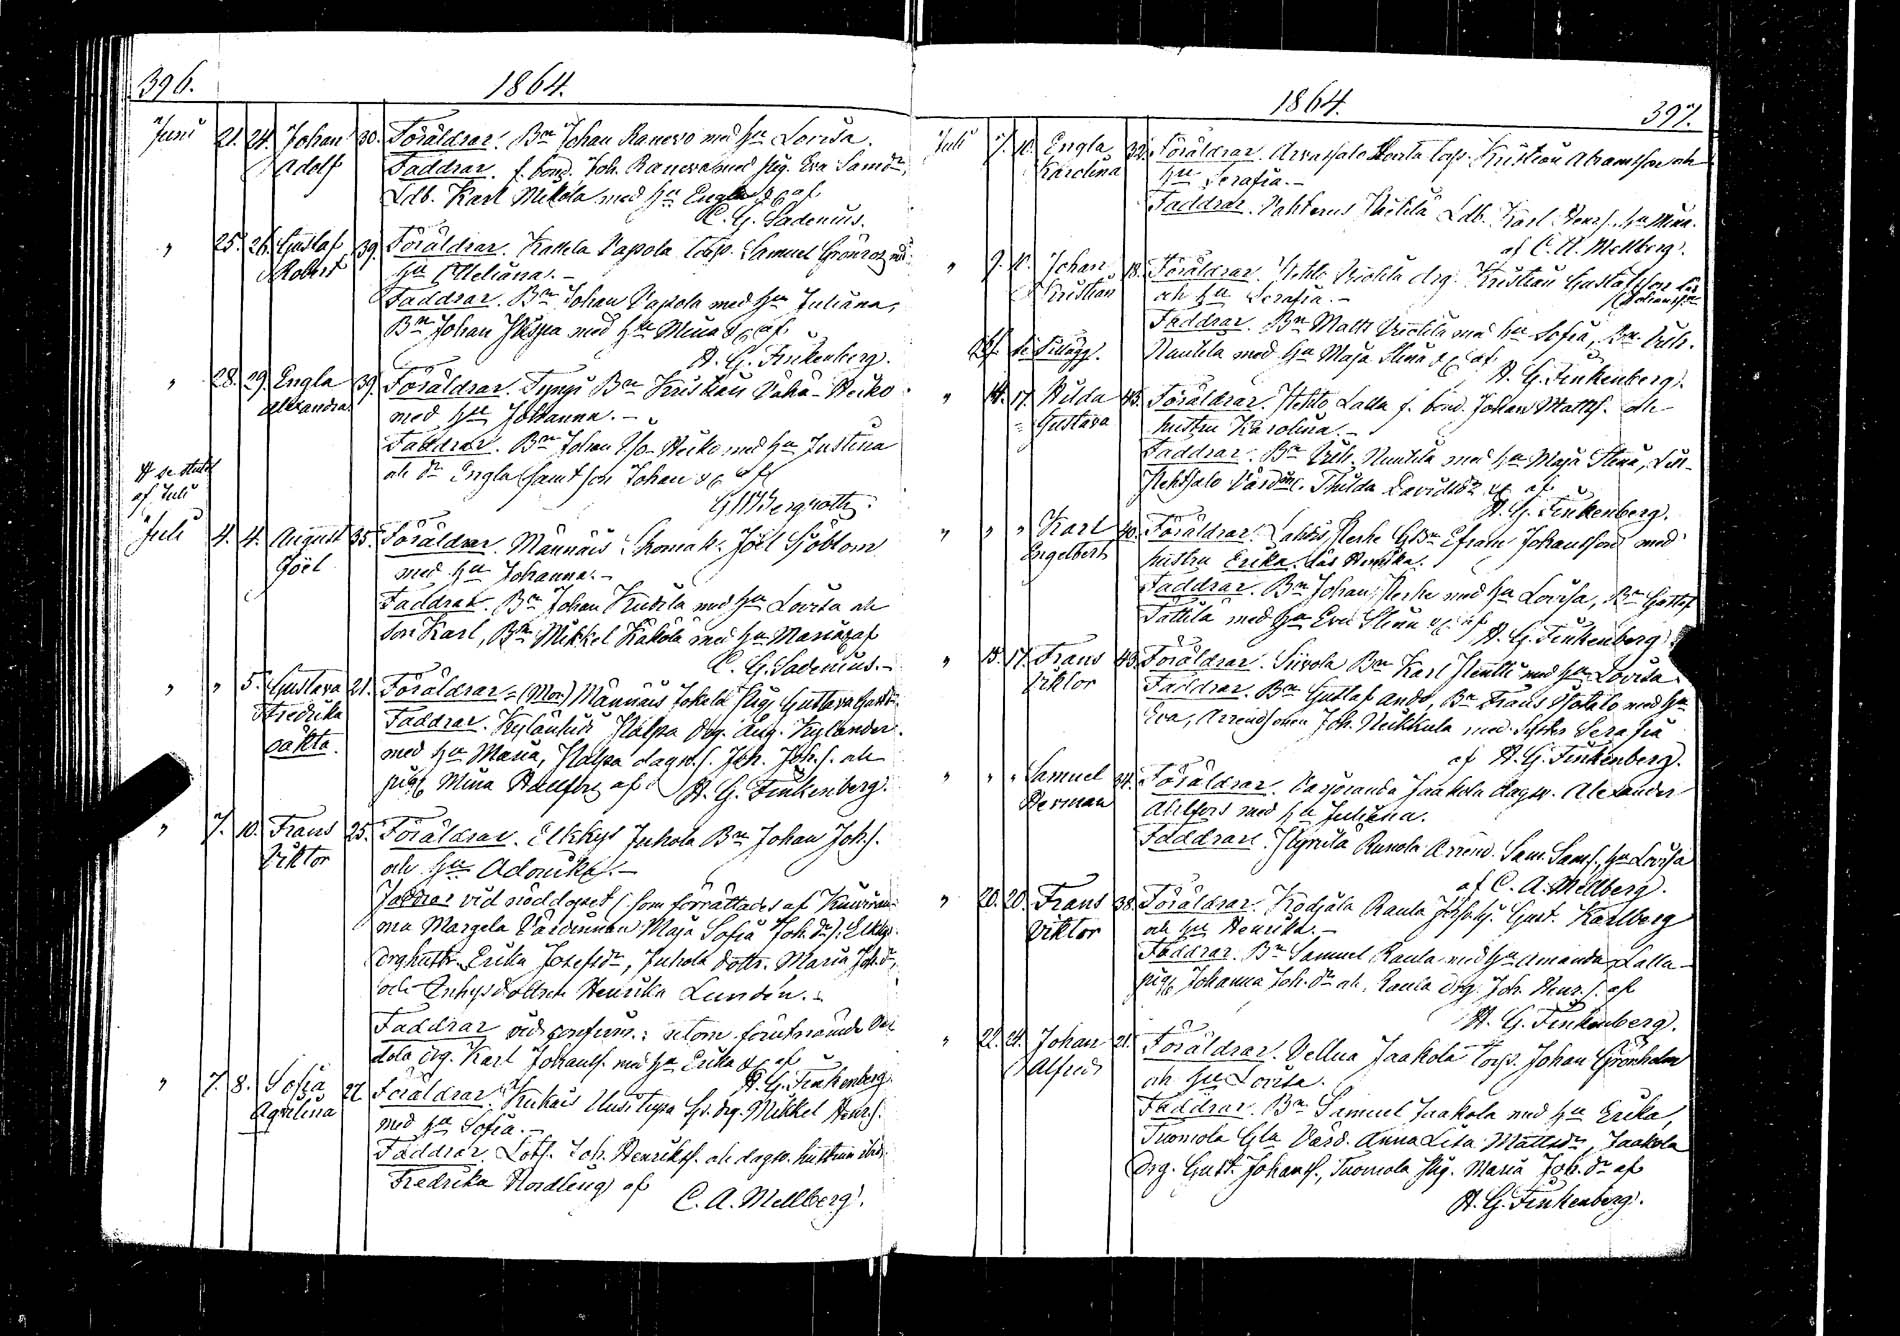 396.
1864.
Juni 21. 24. Johan Adolf 30. Föräldrar. Bn Johan Ranevo med hu Lovisa.
Faddrar. f. bond. Joh. Ranevo med pig. Eva Samdr,
Ldb. Karl Mikola med hu Engla &c af
C. G. Sadenius.
" 25. 26. Gustaf Robert 39. Föräldrar. Kattela Papola Torp. Samuel Grönroos med
hu
Faddrar. Bn Johan Papola med hu Juliana,
Bn Johan Juspa med hu Mina &c af
A. G. Finkenberg.
" 28. 29. Engla Alexandra 39. Föräldrar. Tyngi Bn Kristian Vähä-Heiko
med hu Johanna.-
Faddrar. Bn Johan Iso-Heiko med hu Justina
och dr Engla samt son Johan &c af
G W Bergroth.
# se slutet
af Juli
Juli 4. 4. August Joël 35. Föräldrar. Männäis Skomak. Joël Sjöblom
med hu Johanna.-
Faddrar. Bn Johan Kuusela med hu Lovisa och
son Karl, Bn Mikkel Kakola med hu Maria &c af
C. G. Sadenius.-
" " 5. Gustava Fredrika oäkta. 21. Föräldrar = (Mor) Männäis Jokela Pig. Gustava
Faddrar. Kylänlud Halpa Drg. Aug. Kylander
med hu Maria, Halpa dagsv. s. Joh. Joh.s. och
pig. Mina Hallfors af A. G. Finkenberg.
" 7. 10. Frans Viktor 25. Föräldrar. Elkkys Juhola Bn Johan Joh.s.
och hu
Faddrar vid nöddopet (som förrättades af
Margela Värdinnan Maja Sofia Joh.dr): Elkkys
drghustr. Erika Josefsdr, Juhola dottr. Maria Joh.dr,
och Henrika Lundén.-
Faddrar vid confirm.: utom förutnämnde
drg. Karl Johanss. med hu Erika &c af
A. G. Finkenberg.
" 7. 8. Sofia Aqvilina 27. Föräldrar. Kukais Uusitupa Gv. drg. Mikkel Henr.s.
med hu Sofia.-
Faddrar. Lots. Joh. Henrikss. och dagsv. hustrun
Fredrika Nordling af
C. A. Mellberg.
1864.
397.
Juli 7. 10. Engla Karolina 32. Föräldrar. Arvassalo Torp. Kristian Abramsson och
hu Serafia.-
Faddrar. Vahterus Heikilä Ldb. Karl Henr.s. hu Mina.
af C. A. Mellberg.
" 9. 10. Johan Kristian 18. Föräldrar. Hehto drg. Kristian Gustafsson läs
Johansson
och hu Serafia.-
Faddrar. Bn Matts med hu Sofia, Bn Vilh.
Nuutila med hu Maja Stina &c af
A. G. Finkenberg.
se Tillägg.
" 14. 17. Hilda Gustava 43. Föräldrar. Hehto Lalla f. bond. Johan Matts.s. och
hustru Karolina.-
Faddrar. Bn Vilh. Nuutila med hu Maja Stina,
Thilda Davidsdr &c af
A. G. Finkenberg.
" " " Karl Engelbert 40. Föräldrar. Herke GBn Efraim Johansson med
hustru Erika. läs Henrika.
Faddrar. Bn Johan Herke med hu Lovisa, Bn Gustaf
Tättilä med hu Eva Stina &c af
A. G. Finkenberg.
" 15. 17. Frans Viktor 43. Föräldrar. Siivola Bn Karl Hentti med hu Lovisa.
Faddrar. Bn Gustaf Ando, Bn Frans Isotalo med hu
Eva, Arrendsonen Joh. Neikkula med syster Serafia
af A. G. Finkenberg.
" " " Samuel Herman 34. Föräldrar. Varjoranda Jaakola dagsv. Alexander
Ahlfors med hu Juliana.
Faddrar. Hyrvilä Runola Arrend. Sam. Sam.s., hu Lovisa
af C. A. Mellberg.
" 20. 20. Frans Viktor 38. Föräldrar. Kodjala Raula Gust. Karlberg
och hu Henrika.-
Faddrar. Bn Samuel Raula med hu Amanda, Lalla-
pig. Johanna Joh.dr och Raula drg. Joh. Henr.s. af
A. G. Finkenberg.
" 22. 24. Johan Alfred 21. Föräldrar. Vellua Jaakola Torp. Johan Grönholm
och hu Lovisa.
Faddrar. Bn Samuel Jaakola med hu Erika,
Tuomola Gla Värd. Anna Lisa Mattsdr, Jaakola
Drg. Gust. Johanss., Tuomola Pig. Maria Joh.dr af
A. G. Finkenberg.